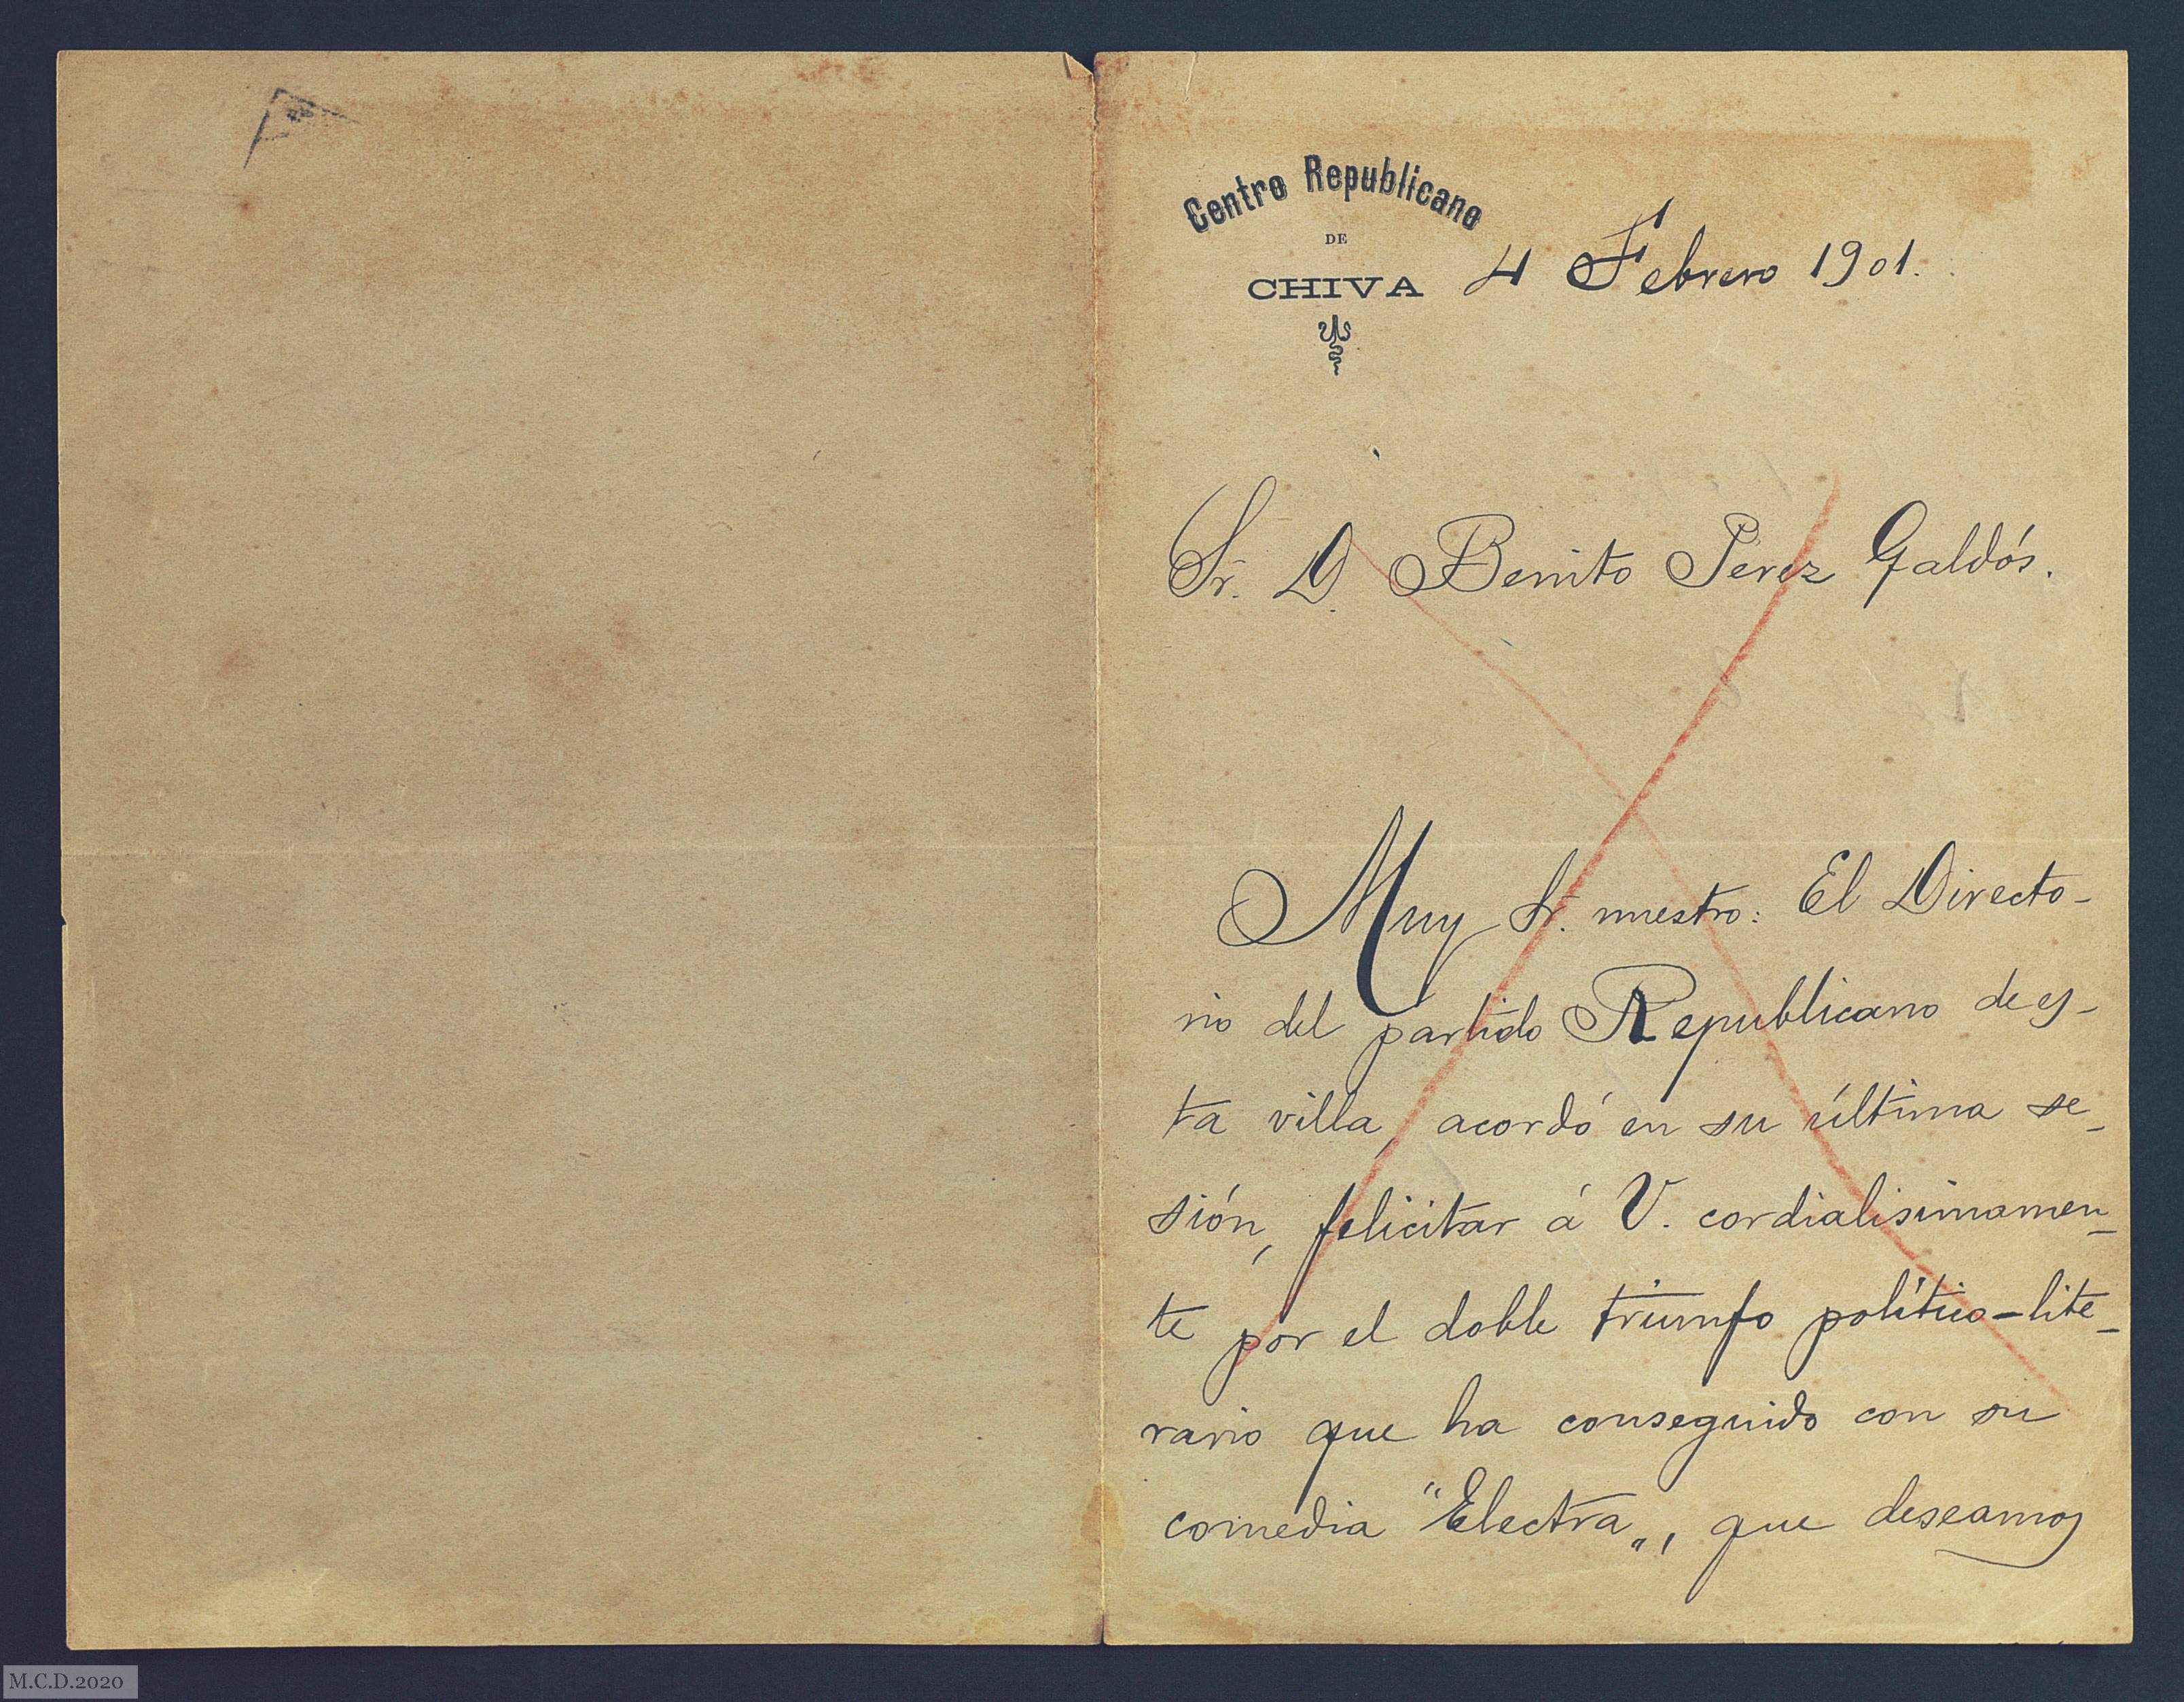 Centro Republicano
DE
CHIVA
4 Febrero 1901.
Sr. D. Benito Pérez Galdós.
Muy Sr. nuestro: El Directo-
rio del partido Republicano de es-
ta villa, acordó en su última se-
sión, felicitar á V. cordialisimamen-
te por el doble triunfo político-lite-
rario que ha conseguido con su
comedia "Electra„, que deseamos
M.C.D.2020